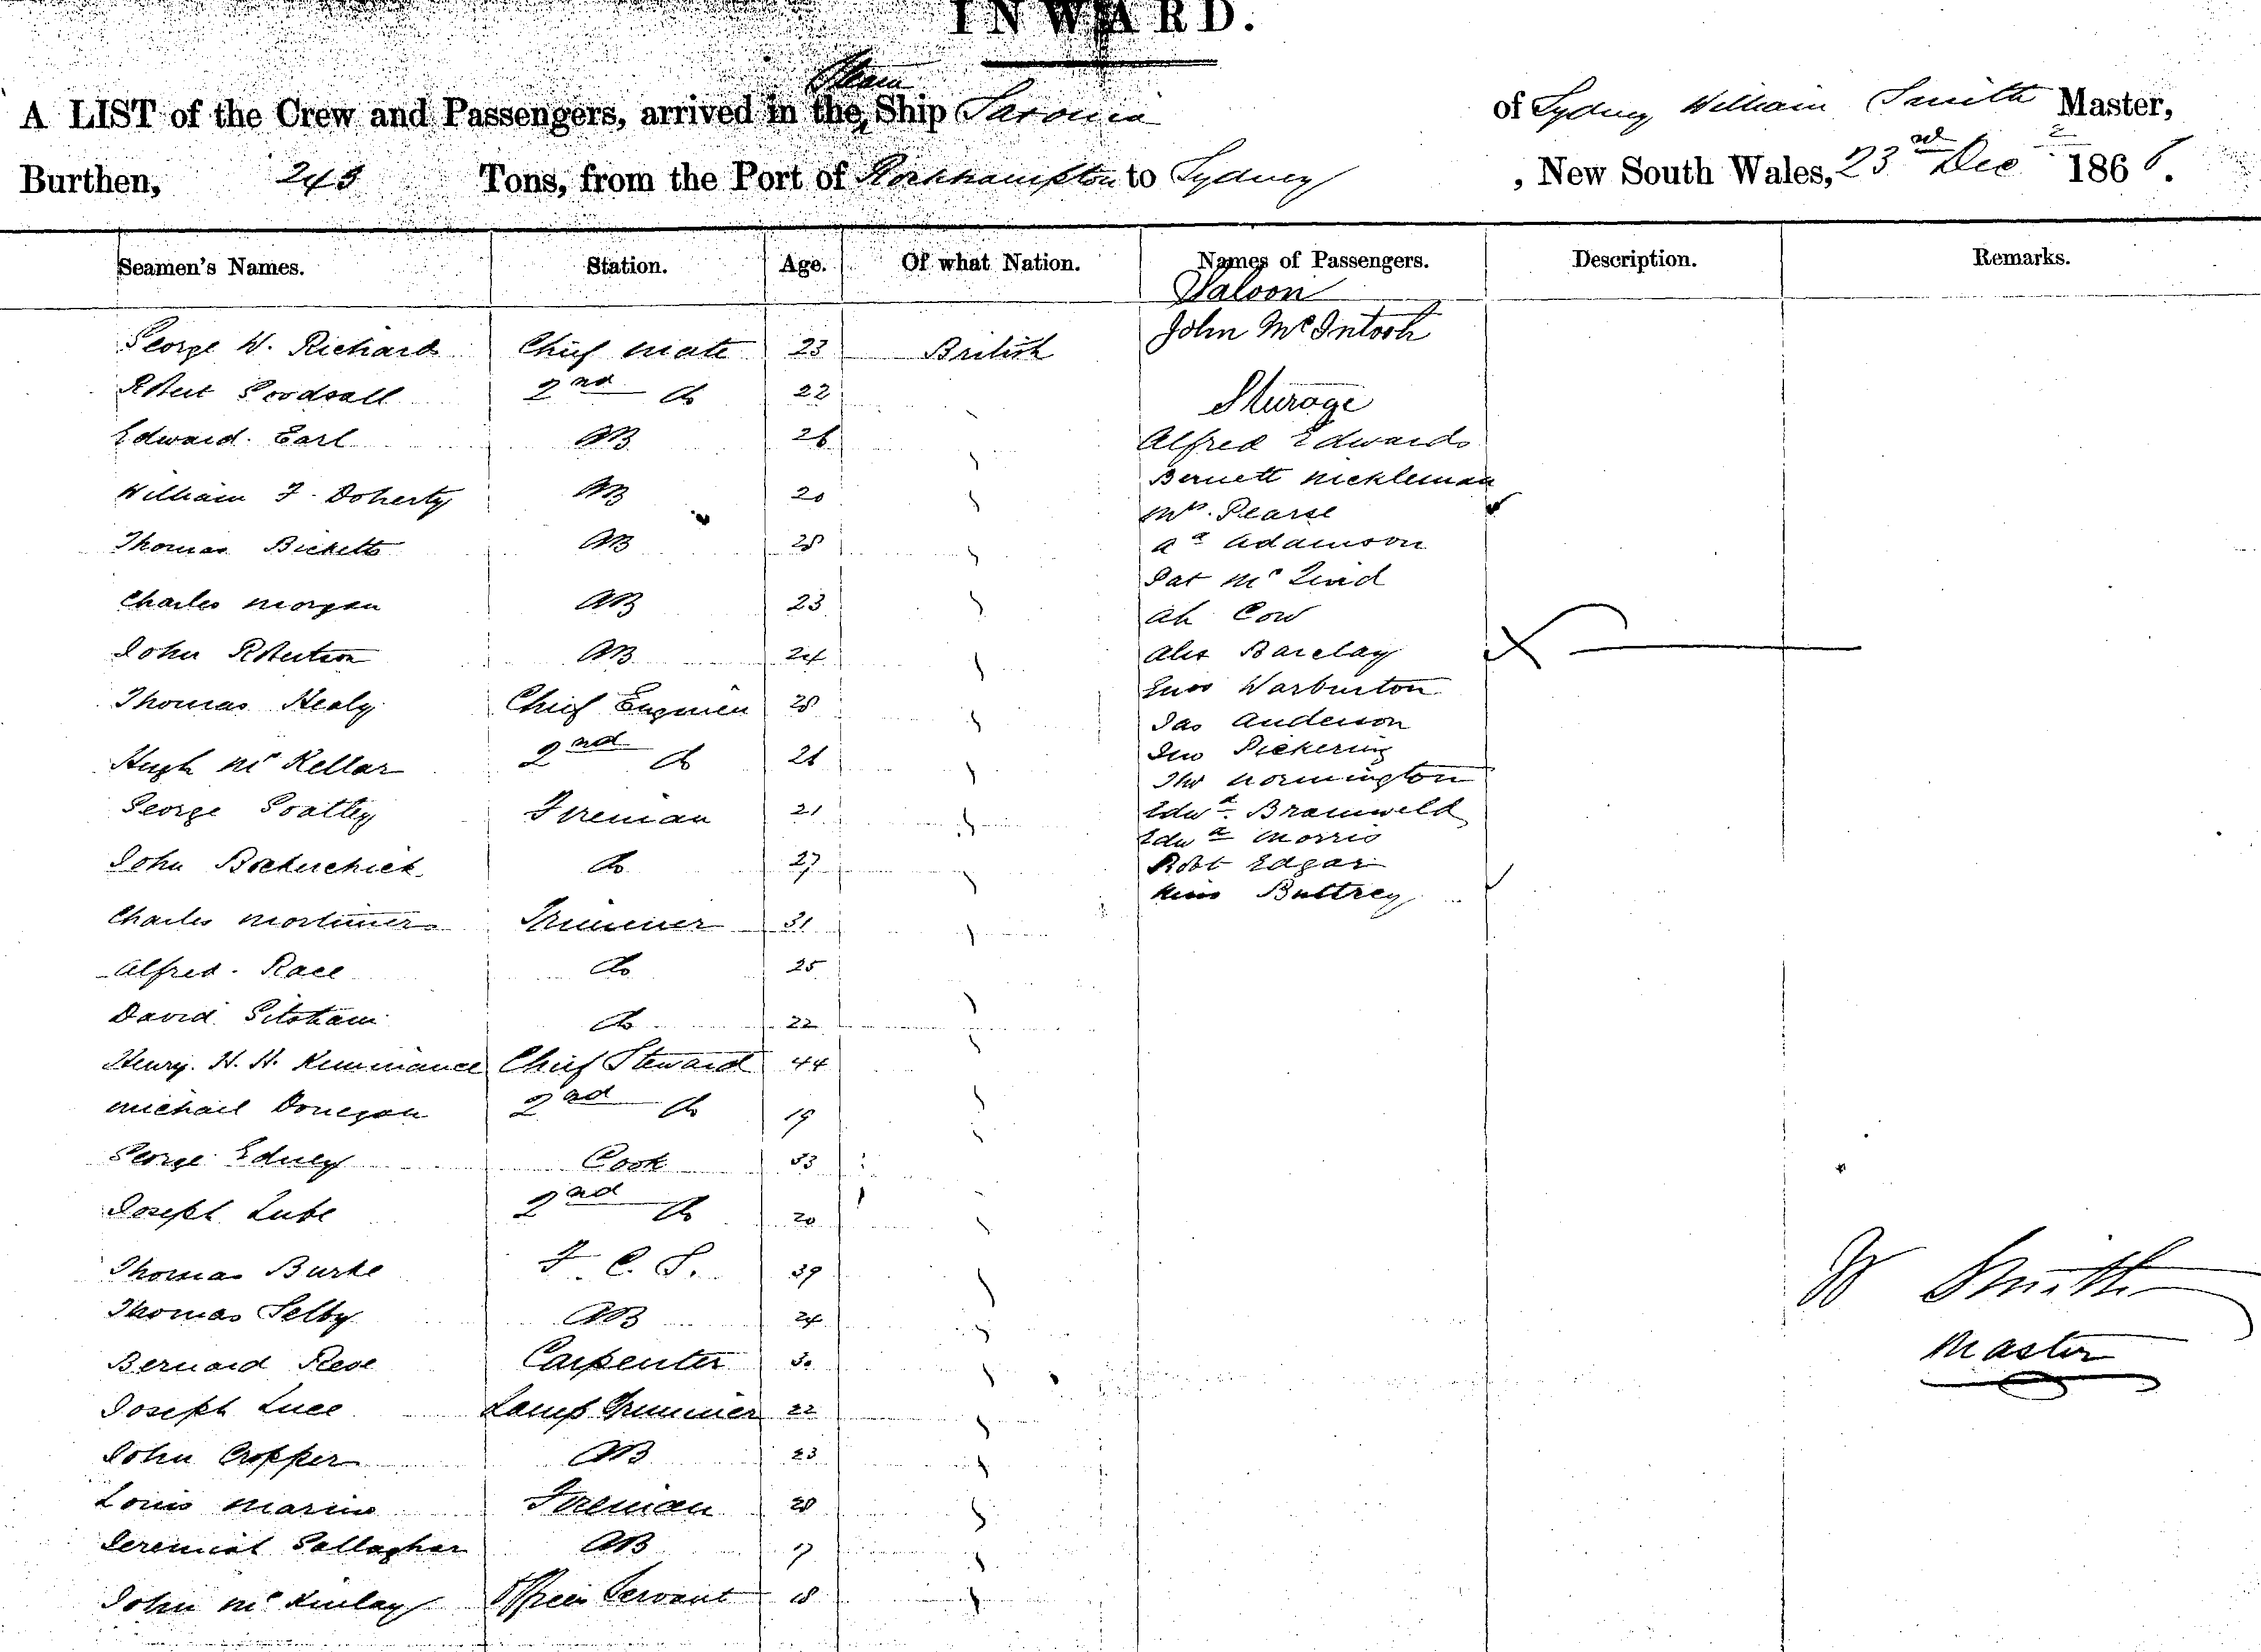 INWARD.
A LIST of the Crew and Passengers, arrived in the Steam Ship Saxonia of Sydney William Smith Master,
Burthen, 243 Tons, from the Port of Rockhampton to Sydney, New South Wales, 23rd Dec 1866.
Seamen's Names. Station. Age. Of what Nation. Names of Passengers. Description. Remarks.
Saloon
George W. Richards Chief mate 23 British John McIntosh
Robert Goodsall 2nd do 22
Steerage
Edward Earl AB 26 Alfred Edwards
Bernett Nickleman
William F. Doherty AB 20 Pearse
Thomas Bicketts AB 28 Adamson
Pat Mc
Charles Morgan AB 23 Ah Cow
John Robertson AB 24 Alex Barclay
Enos Warburton
Thomas Healy Chief Engineer 28 Jas Anderson
Hugh McKellar 2nd do 26 Jno Pickering
Thos Normington
George Goatley Fireman 21 Edwd Bramweld
Edwd Morris
John do 27 Robt Edgar
Buttrey
Charles Mortimer Trimmer 31
Alfred Race do 25
David Gitsham do 22
Henry H. H. Kemmance Chief Steward 44
Michael Donegan 2nd do 19
George Edney Cook 33
Joseph 2nd do 20
Thomas Burke F. C. S. 39
Thomas Selby AB 24
Bernard Reve Carpenter 30
Joseph Luce Lamp Trimmer 22
W Smith
Master
John Cropper AB 23
Louis Marino Fireman 28
Jeremiah Gallaghar AB 17
John McKinlay Officers Servant 18